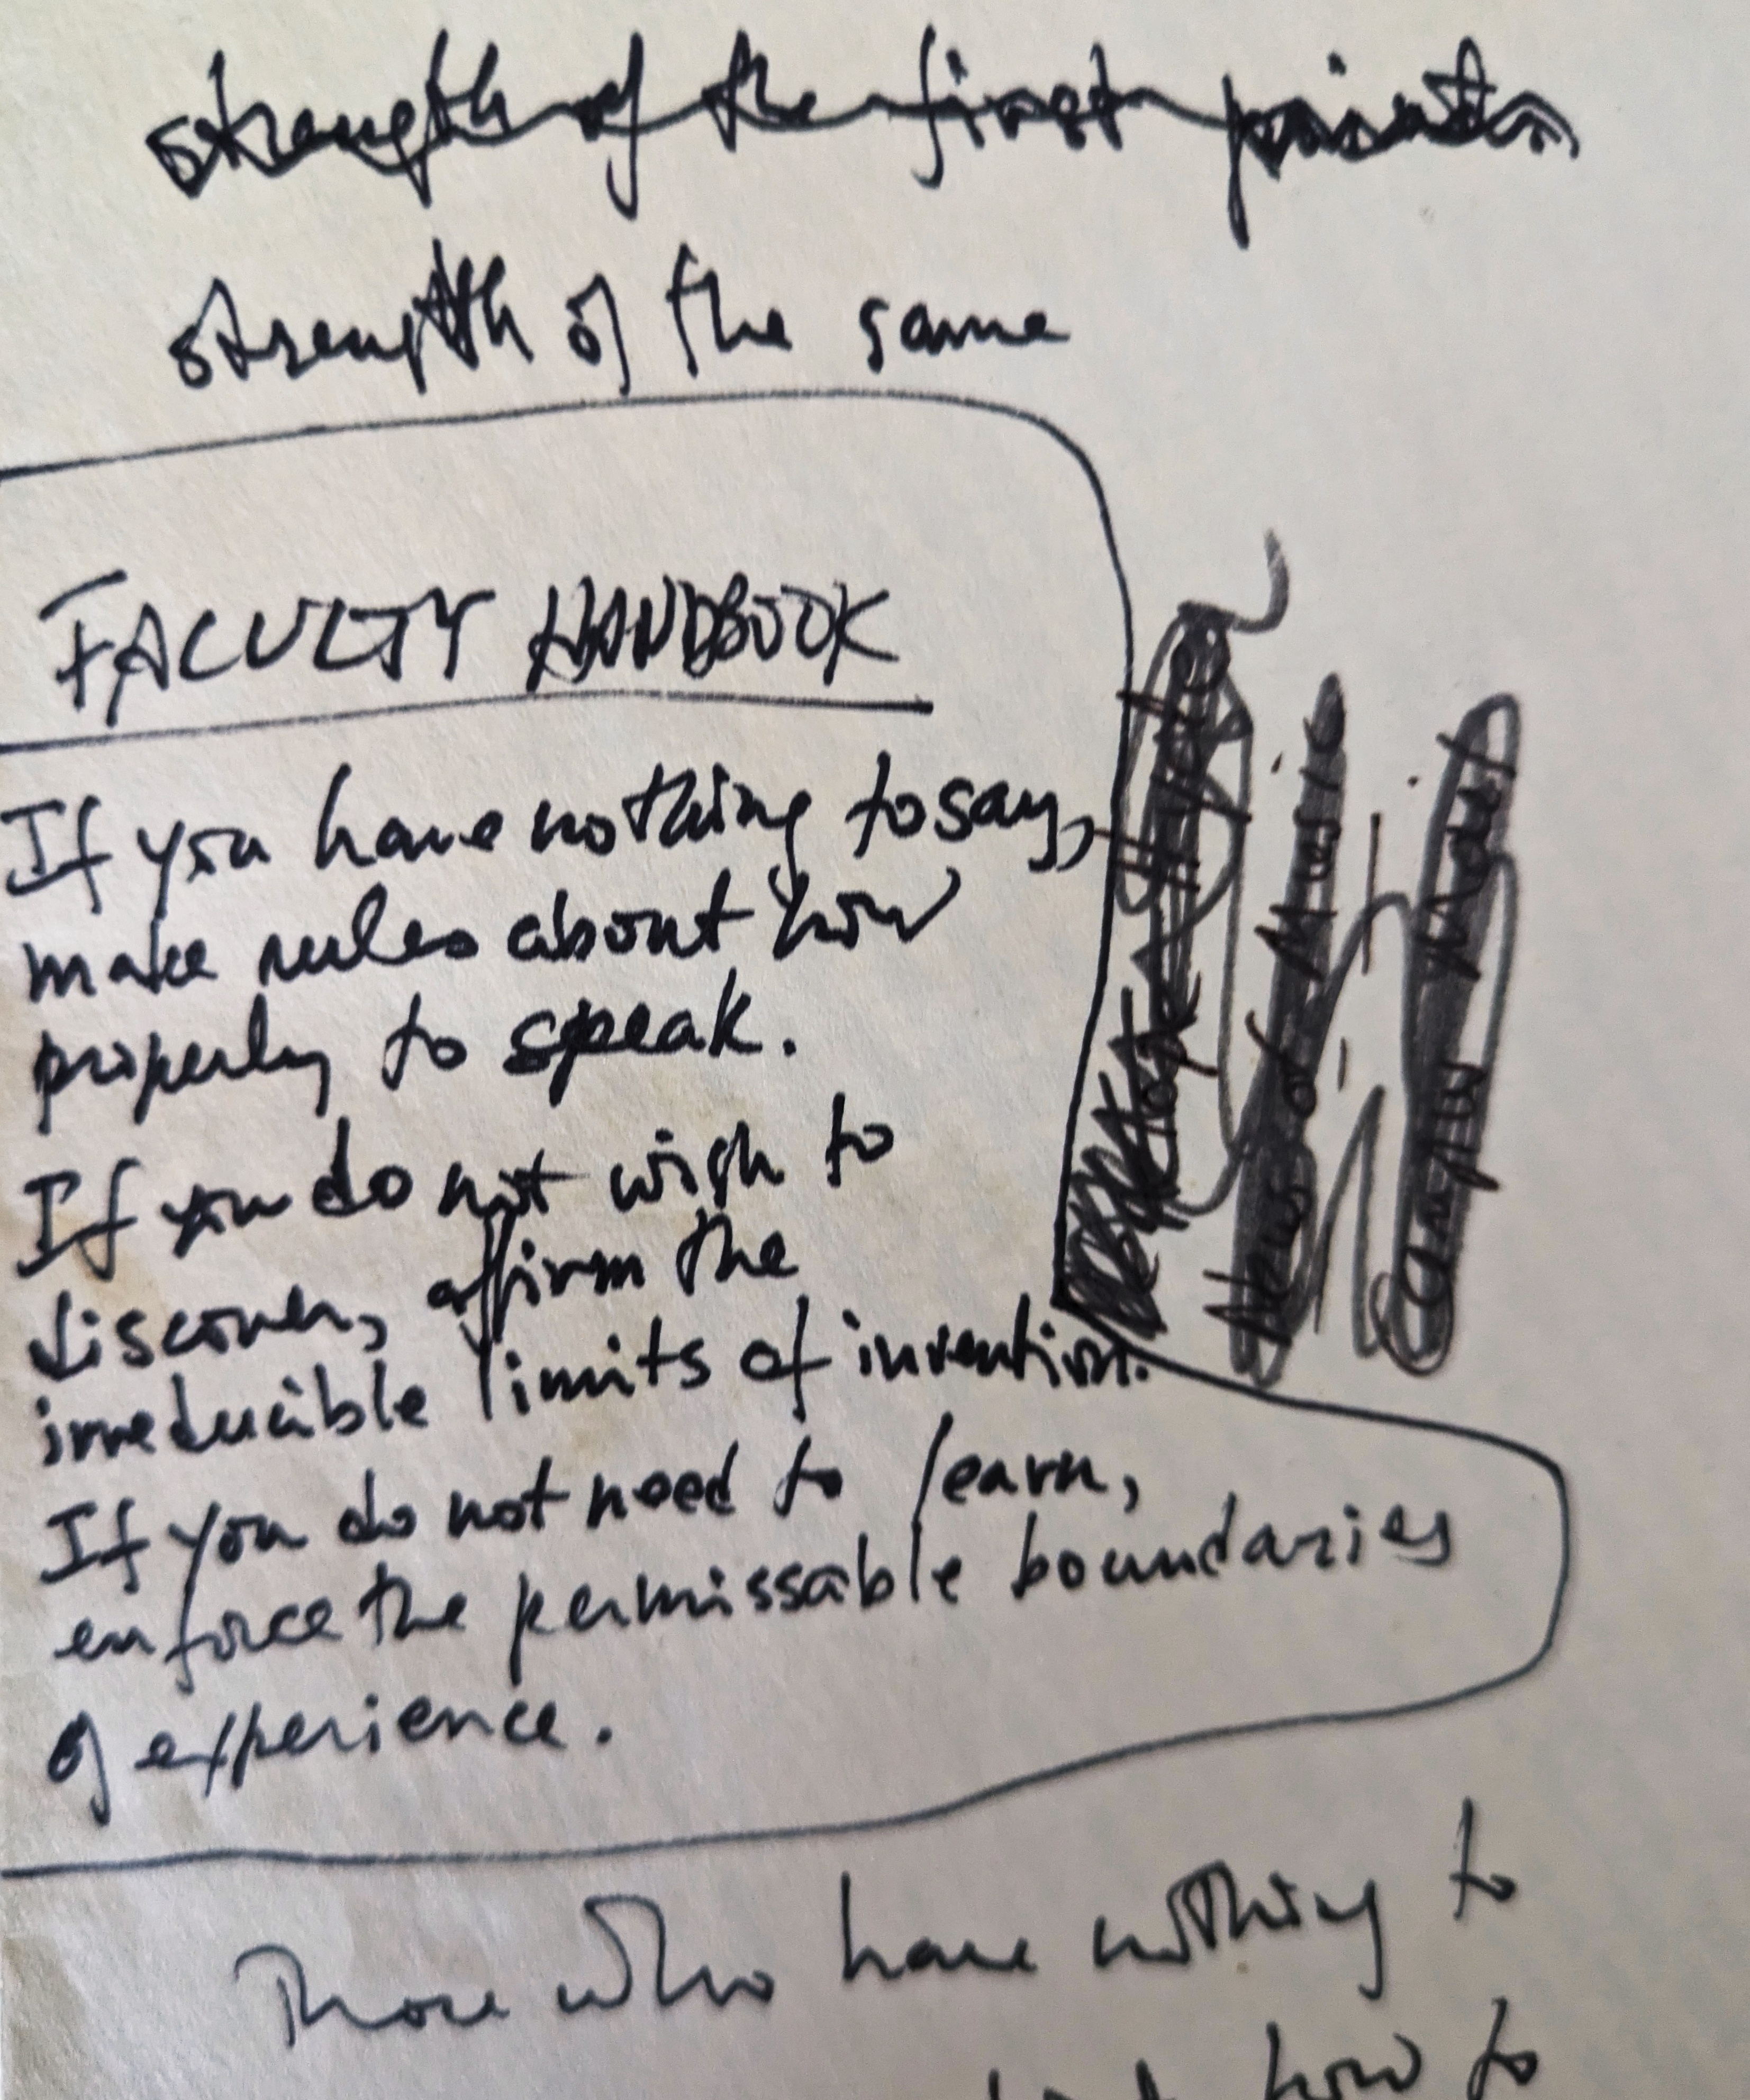 strength of the first
strength of the same
FACULTY HANDBOOK
If you have nothing to say,
make rules about how
properly to speak.
If you do not wish to
discover, affirm the
irreducible limits of invention.
If you do not need to learn,
enforce the permissable boundaries
of experience.
Those who have nothing to
how to